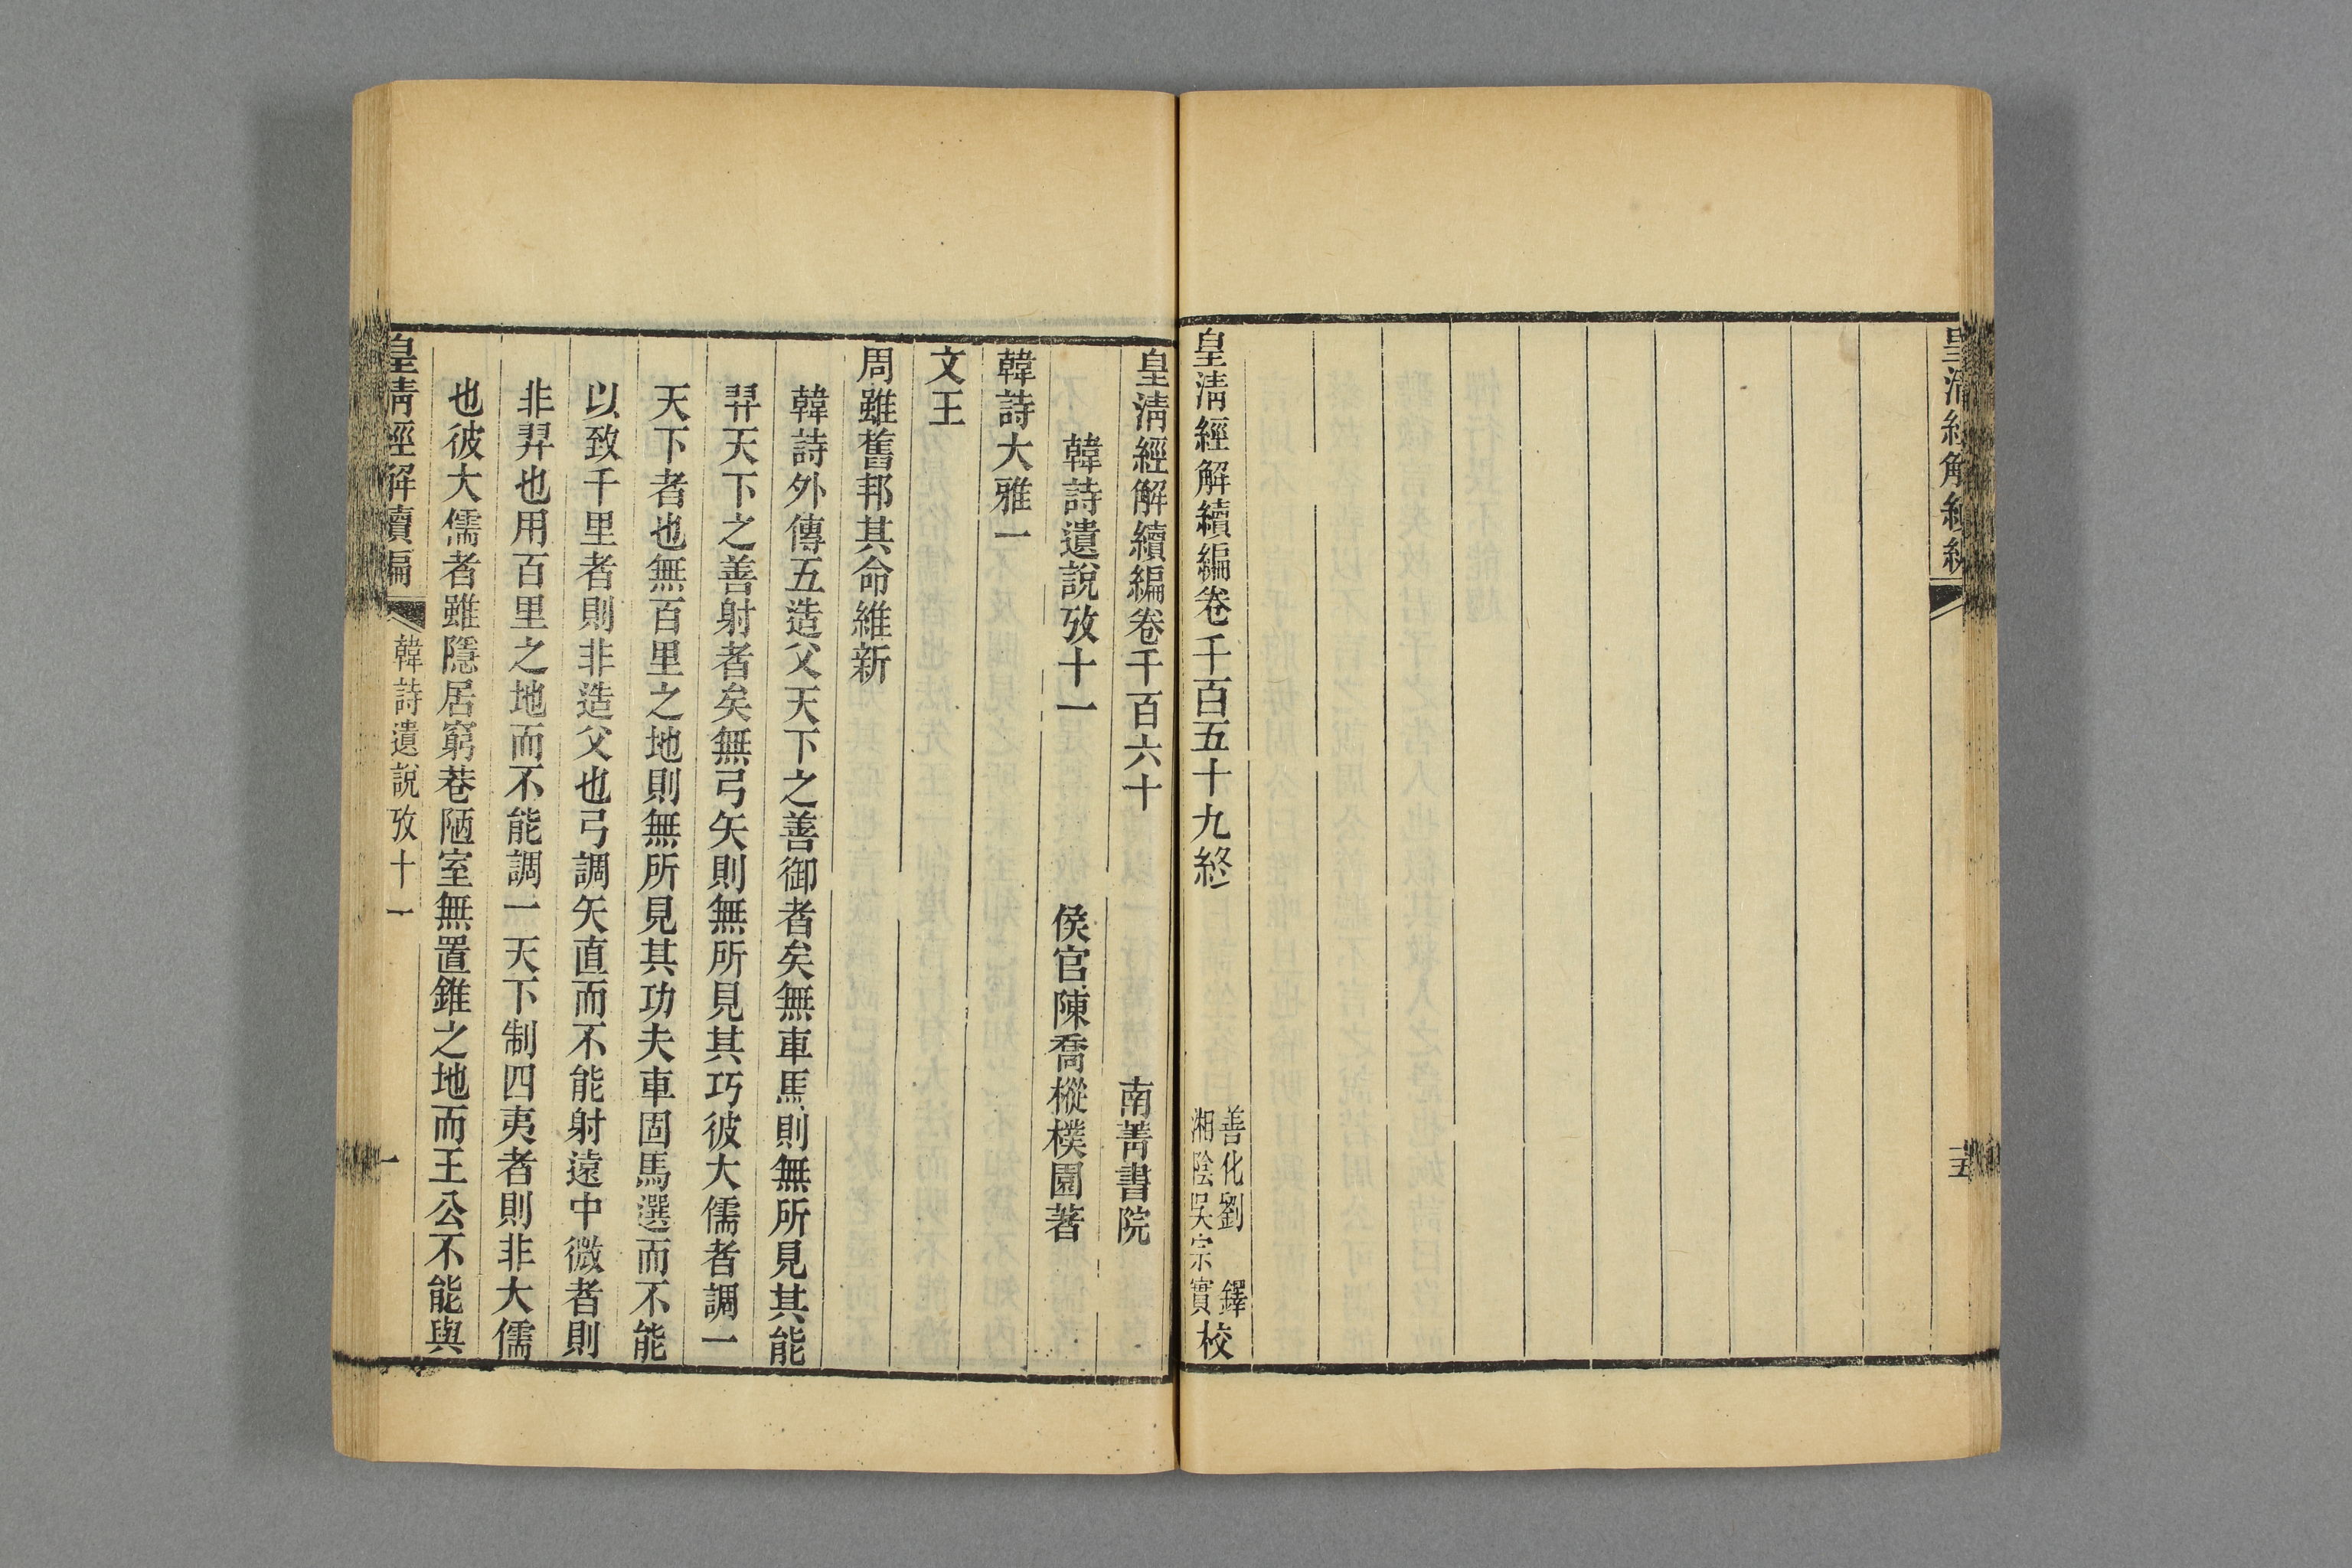 皇清經解續編
皇清經解續編卷千百五十九終
善化劉　鐸
湘陰吳宗實校
皇清經解續編卷千百六十　南菁書院
韓詩遺說攷十一　侯官陳喬樅樸園著
韓詩大雅一
文王
周雖舊邦其命維新
韓詩外傳五造父天下之善御者矣無車馬則無所見其能
羿天下之善射者矣無弓矢則無所見其巧彼大儒者調一
天下者也無百里之地則無所見其功夫車固馬選而不能
以致千里者則非造父也弓調矢直而不能射遠中微者則
非羿也用百里之地而不能調一天下制四夷者則非大儒
也彼大儒者雖隱居窮巷陋室無置錐之地而王公不能與
皇清經解續編　韓詩遺說攷十一　一